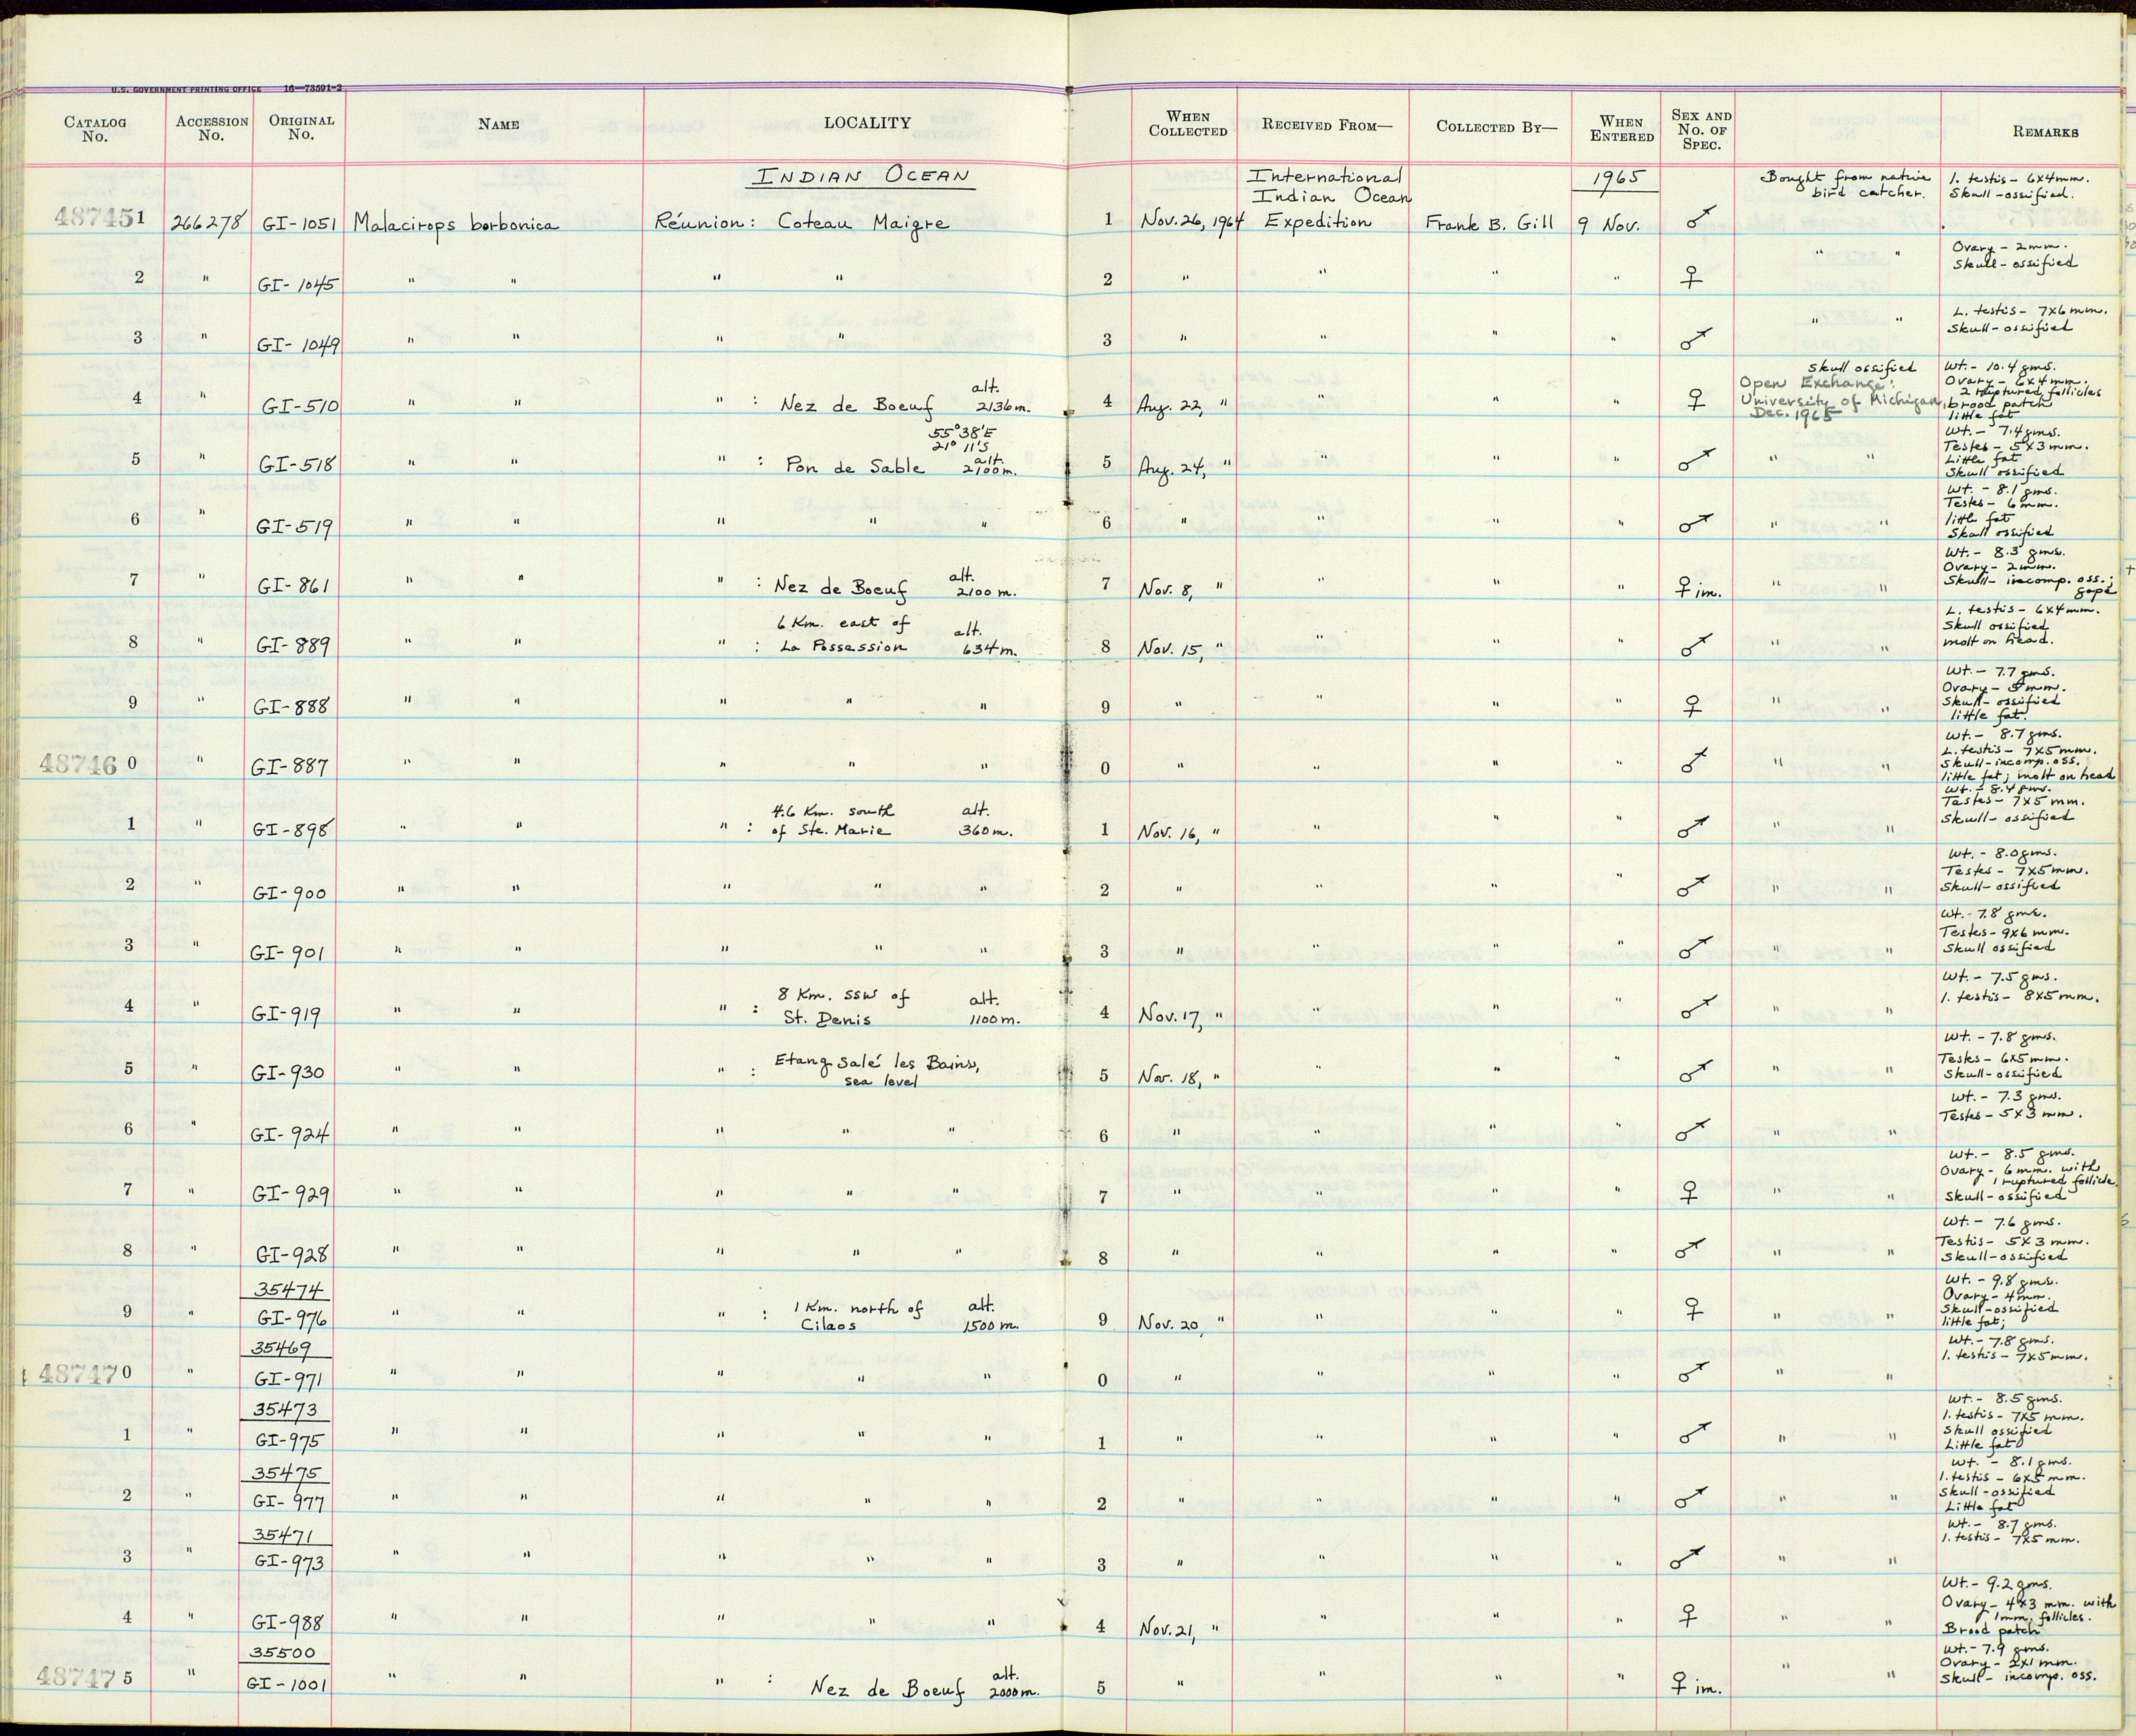 U.S. GOVERNMENT PRINTING OFFICE 16—73591-2
CATALOG No. ACCESSION No. ORIGINAL No. NAME LOCALITY WHEN COLLECTED RECEIVED FROM— COLLECTED BY— WHEN ENTERED SEX AND No. OF SPEC. REMARKS
INDIAN OCEAN International Indian Ocean 1965 Bought from native bird catcher. l. testis - 6x4mm. Skull-ossified.
487451 266278 GI-1051 Malacirops borbonica Réunion: Coteau Maigre 1 Nov. 26, 1964 Expedition Frank B. Gill 9 Nov. ♂
2 " GI-1045 " " " " 2 " " " " ♀ " " Ovary - 2mm. Skull-ossified
3 " GI-1049 " " " " 3 " " " " ♂ " " L. testis - 7x6mm. Skull-ossified
4 " GI-510 " " " : Nez de Boeuf alt. 2136m. 4 Aug. 22, " " " " ♀ skull ossified Open Exchange: University of Michigan, Dec. 1965 Wt. - 10.4 gms. Ovary - 6x4mm. 2 ruptured follicles brood patch little fat
55°38'E
21° 11'S
5 " GI-518 " " " : Pon de Sable alt. 2100m. 5 Aug. 24, " " " " ♂ " " Wt. - 7.4 gms. Testes - 5x3mm. Little fat Skull ossified
6 " GI-519 " " " " " 6 " " " " ♂ " " Wt. - 8.1 gms. Testes - 6mm. little fat Skull ossified
7 " GI-861 " " " : Nez de Boeuf alt. 2100 m. 7 Nov. 8, " " " " ♀ im. " " Wt. - 8.3 gms. Ovary - 2mm. Skull- incomp. oss.; gape
8 " GI-889 " " " : 6 Km. east of La Possession alt. 634m. 8 Nov. 15, " " " " ♂ " " L. testis - 6x4mm. Skull ossified molt on head.
9 " GI-888 " " " " " 9 " " " " ♀ " " Wt. - 7.7 gms. Ovary - 5mm. Skull-ossified little fat.
487460 " GI-887 " " " " " 0 " " " " ♂ " " Wt. - 8.7 gms. L. testis - 7x5mm. Skull-incomp. oss. little fat; molt on head
1 " GI-898 " " " : 4.6 Km. south of Ste. Marie alt. 360m. 1 Nov. 16, " " " " ♂ " " Wt. - 8.4 gms. Testes - 7x5mm. Skull-ossified
2 " GI-900 " " " " " 2 " " " " ♂ " " Wt. - 8.0 gms. Testes - 7x5mm. Skull-ossified
3 " GI-901 " " " " " 3 " " " " ♂ " " Wt. - 7.8 gms. Testes - 9x6mm. Skull ossified
4 " GI-919 " " " : 8 Km. SSW of St. Denis alt. 1100m. 4 Nov. 17, " " " " ♂ " " Wt. - 7.5 gms. l. testis - 8x5mm.
5 " GI-930 " " " : Etang Salé les Bains, sea level 5 Nov. 18, " " " " ♂ " " Wt. - 7.8 gms. Testes - 6x5mm. Skull-ossified
6 " GI-924 " " " " " 6 " " " " ♂ " " Wt. - 7.3 gms. Testes - 5x3mm.
7 " GI-929 " " " " " 7 " " " " ♀ " " Wt. - 8.5 gms. Ovary - 6mm. with 1 ruptured follicle. Skull-ossified
8 " GI-928 " " " " " 8 " " " " ♂ " " Wt. - 7.6 gms. Testis - 5x3mm. Skull-ossified
35474
9 " GI-976 " " " : 1 Km. north of Cilaos alt. 1500m. 9 Nov. 20, " " " " ♀ " " Wt. - 9.8 gms. Ovary - 4mm. Skull-ossified little fat;
35469
487470 " GI-971 " " " " " 0 " " " " ♂ " " Wt. - 7.8 gms. l. testis - 7x5mm.
35473
1 " GI-975 " " " " " 1 " " " " ♂ " " Wt. - 8.5 gms. l. testis - 7x5mm. Skull ossified Little fat
35475
2 " GI-977 " " " " " 2 " " " " ♂ " " Wt. - 8.1 gms. l. testis - 6x5mm. Skull-ossified Little fat
35471
3 " GI-973 " " " " " 3 " " " " ♂ " " Wt. - 8.7 gms. l. testis - 7x5mm.
4 " GI-988 " " " " " 4 Nov. 21, " " " " ♀ " " Wt. - 9.2 gms. Ovary - 4x3mm. with 1mm. follicles. Brood patch
35500
487475 " GI-1001 " " " : Nez de Boeuf alt. 2000m. 5 " " " " ♀ im. " " Wt. - 7.9 gms. Ovary - 2x1mm. Skull- incomp. oss.